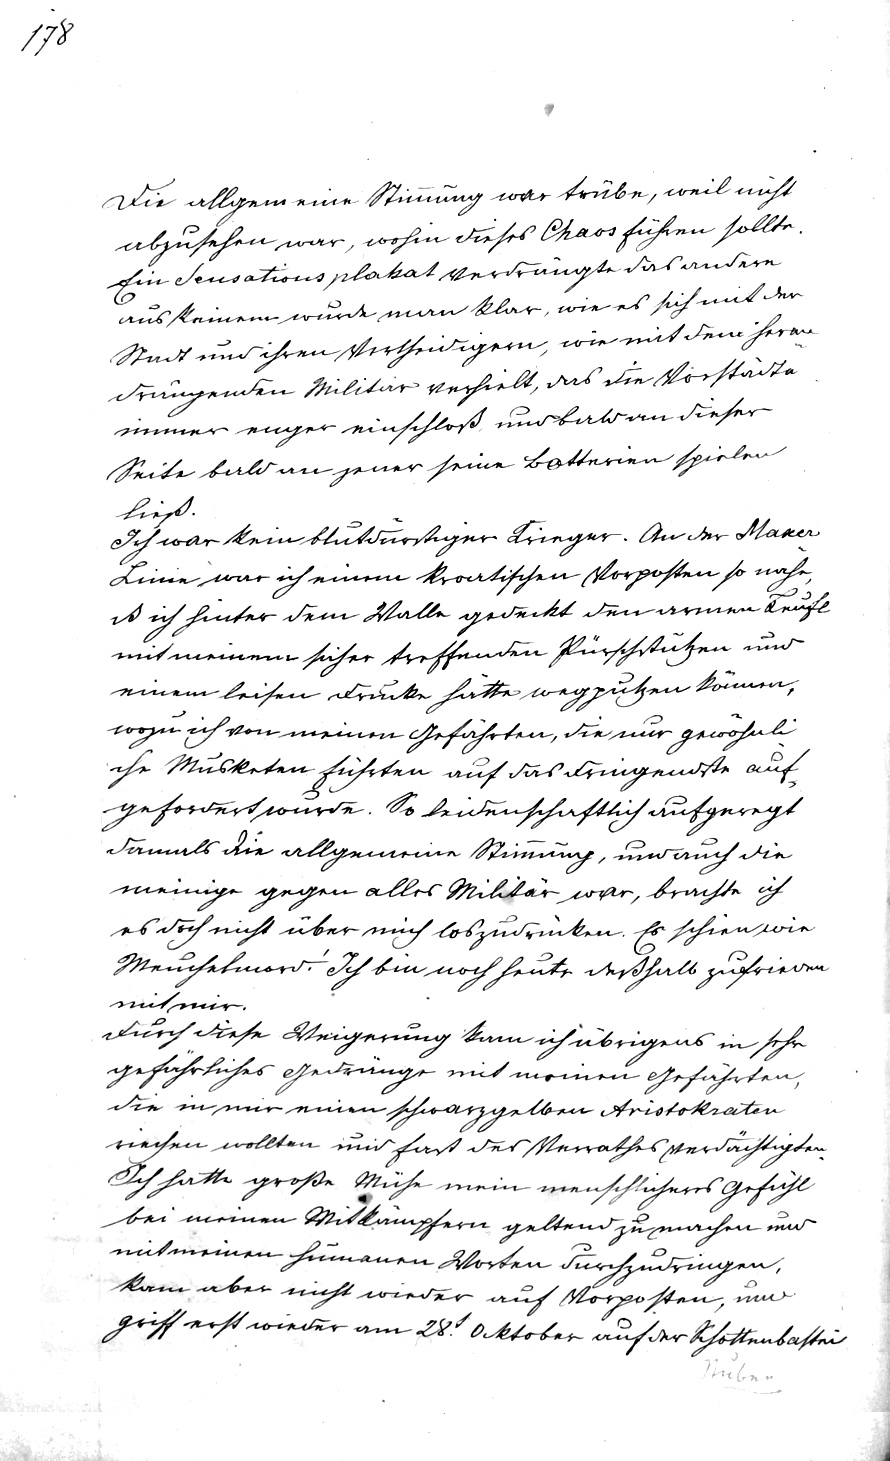 178
Die allgemeine Stimmung war trübe, weil nicht
abzusehen war, wohin dieses Chaos führen sollte.
Ein Sensationsplakat verdrängte das andere
aus keinem wurde man klar, wie es sich mit der
Stadt und ihren Vertheidigern, wie mit dem heran
drängenden Militär verhielt, das die Vorstädte
immer enger einschloß, und bald an dieser
Seite bald an jener seine Batterien spielen
ließ.
Ich war kein blutdürstiger Krieger. An der Maxer
Linie war ich einem kroatischen Vorposten so nahe,
ß ich hinter dem Walle gedeckt den armen Teufl
mit meinem sicher treffenden Pürschstutzen und
einem leisen Drucke hätte wegputzen können,
wozu ich von meinen Gefährten, die nur gewöhnli
che Musketen führten auf das dringendste auf-
gefordert wurde. So leidenschaftlich aufgeregt
damals die allgemeine Stimmung, und auch die
meinige gegen alles Militär war, brachte ich
es doch nicht über mich loszudrücken. Es schien wie
Meuchelmord! Ich bin noch heute deßhalb zufrieden
mit mir.
Durch diese Weigerung kam ich übrigens in sehr
gefährliches Gedränge mit meinen Gefährten,
die in mir einen schwarzgelben Aristokraten
riechen wollten und fast des Verrathes verdächtigten.
Ich hatte große Mühe mein menschlicheres Gefühl
bei meinen Mitkämpfern geltend zu machen und
mit meinen humanen Worten durchzudringen,
kam aber nicht wieder auf Vorposten, und
griff erst wieder am 28.t Oktober auf der Schottenbastei